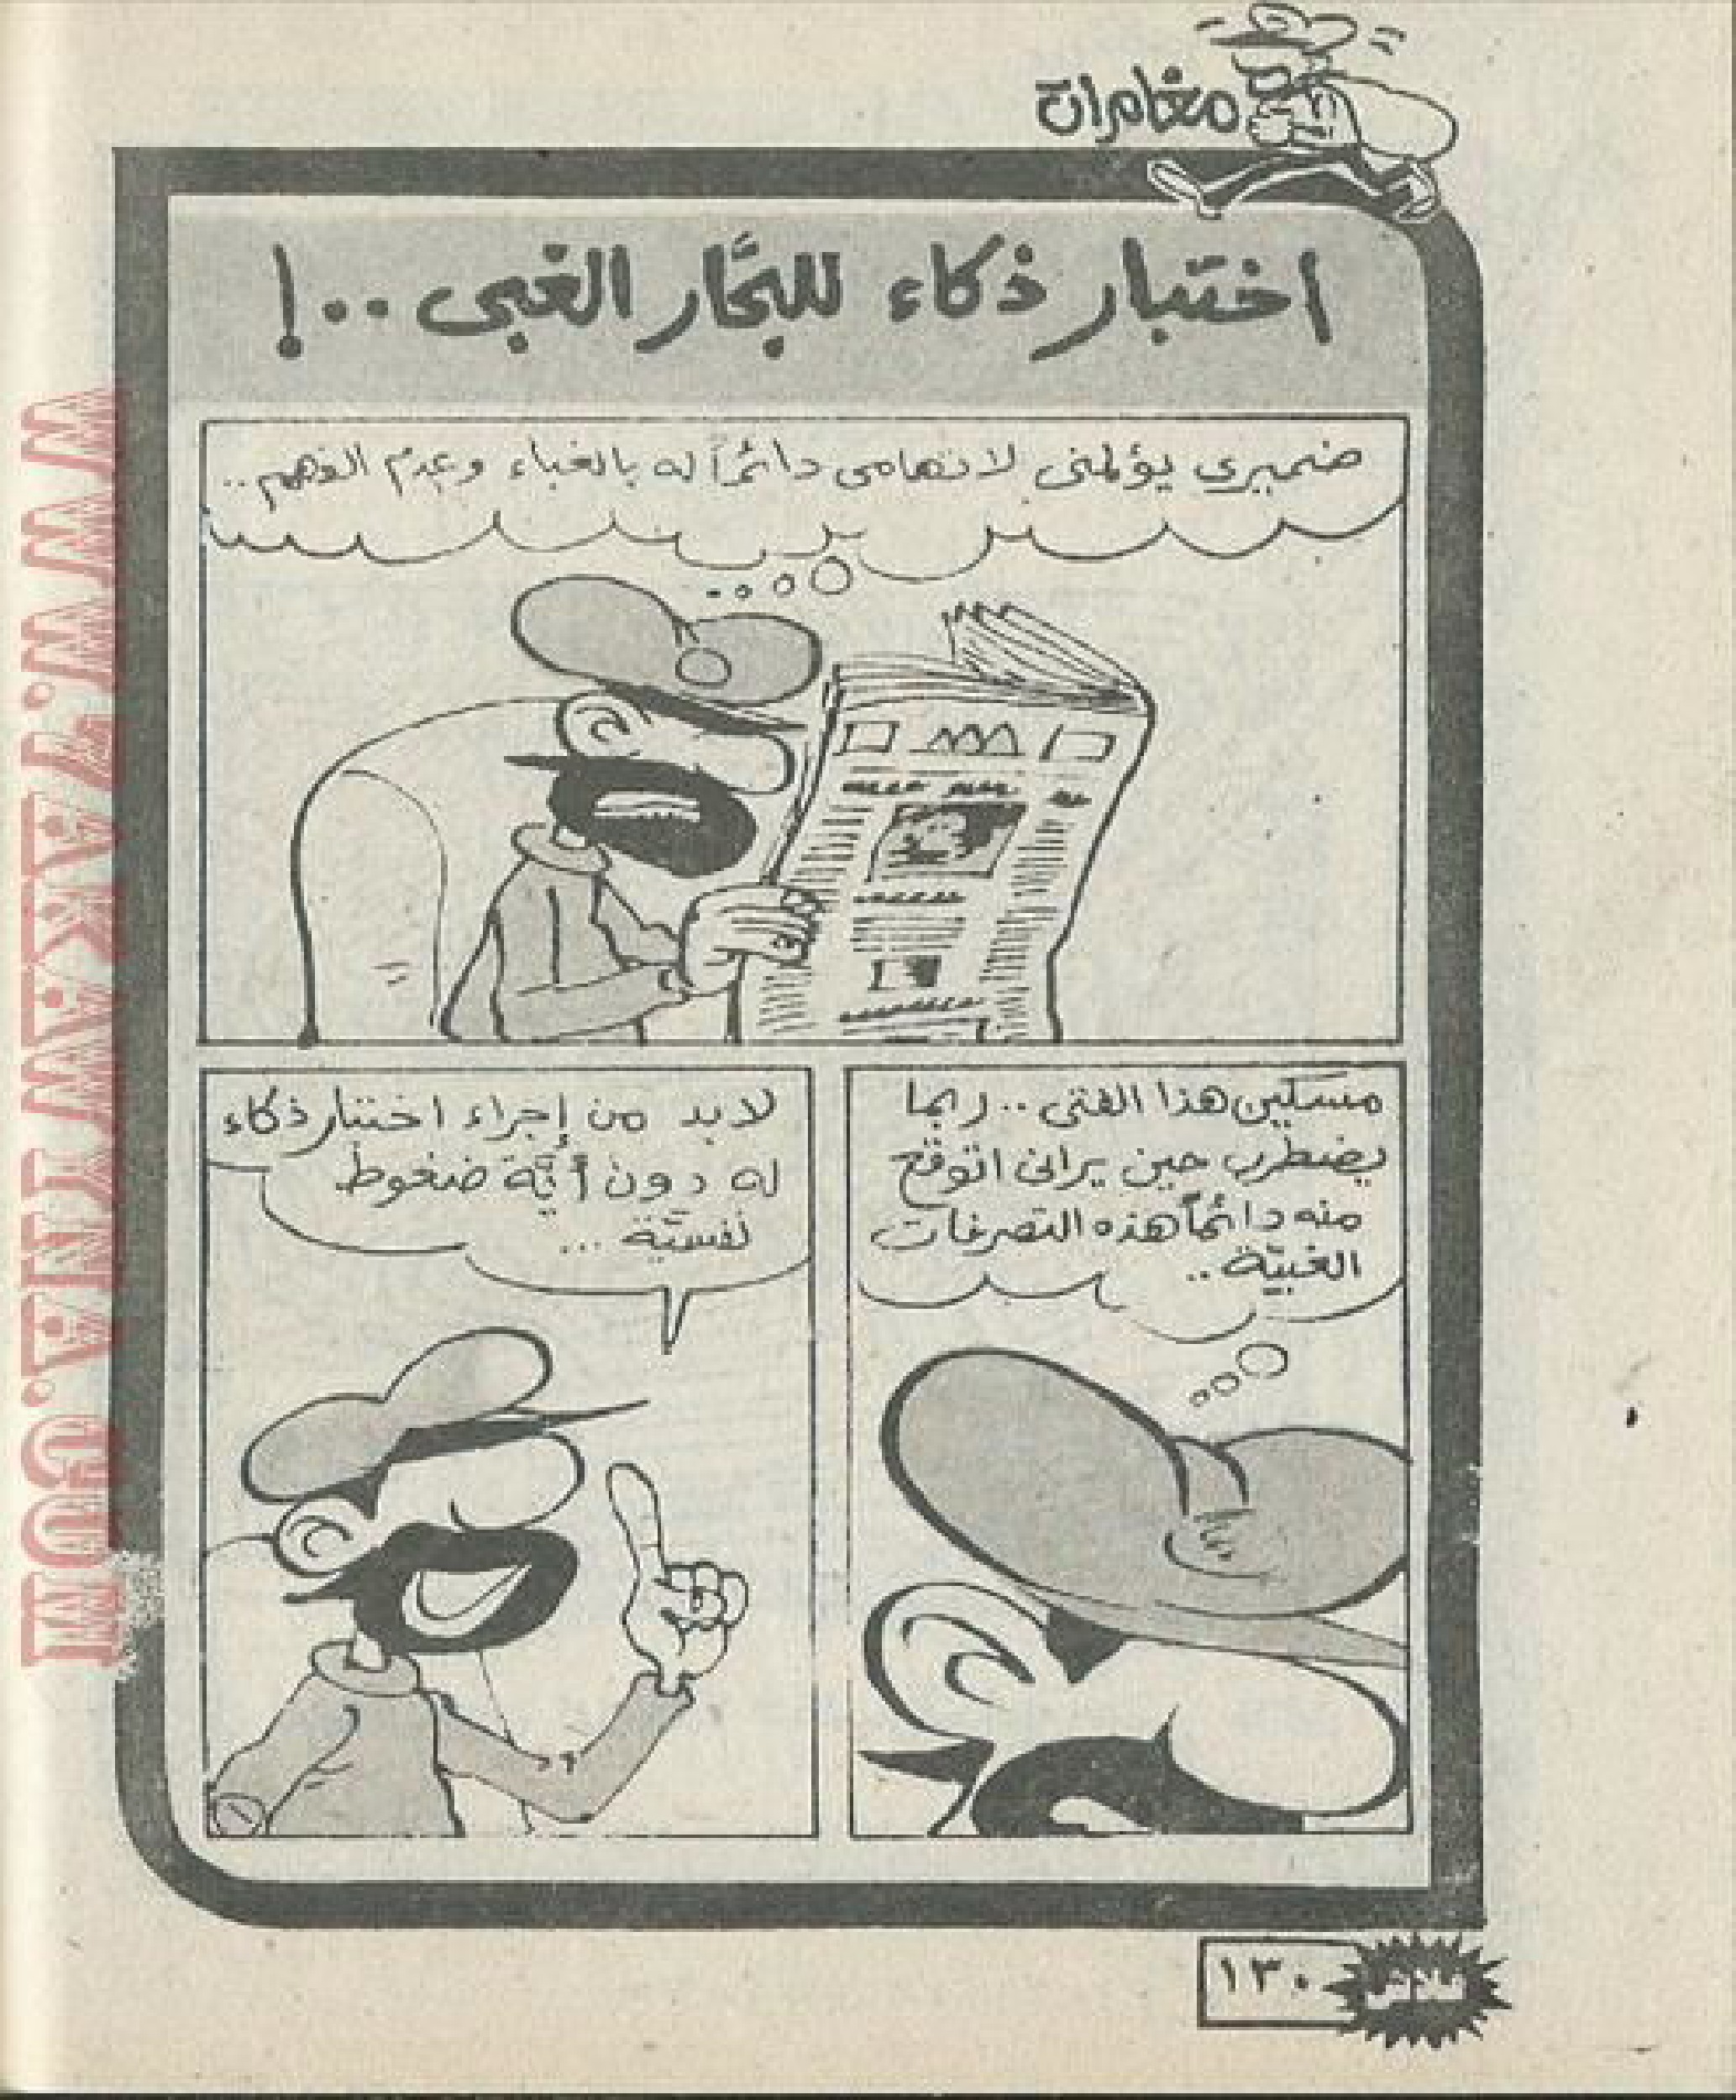 مغامرات
اختبار ذكاء للبحَّار الغبى ..!
ضميرى يؤلمنى لاتهامى دائماً له بالغباء وعدم الفهم ..
مسكين هذا الفتى .. ربما
يضطرب حين يرانى اتوقع
منه دائماً هذه التصرفات
الغبيّة ..
لابد من إجراء اختبار ذكاء
له دون أيّة ضغوط
نفسيّة ...
١٣٠
فلاش
WWW.7AKAWITNA.COM